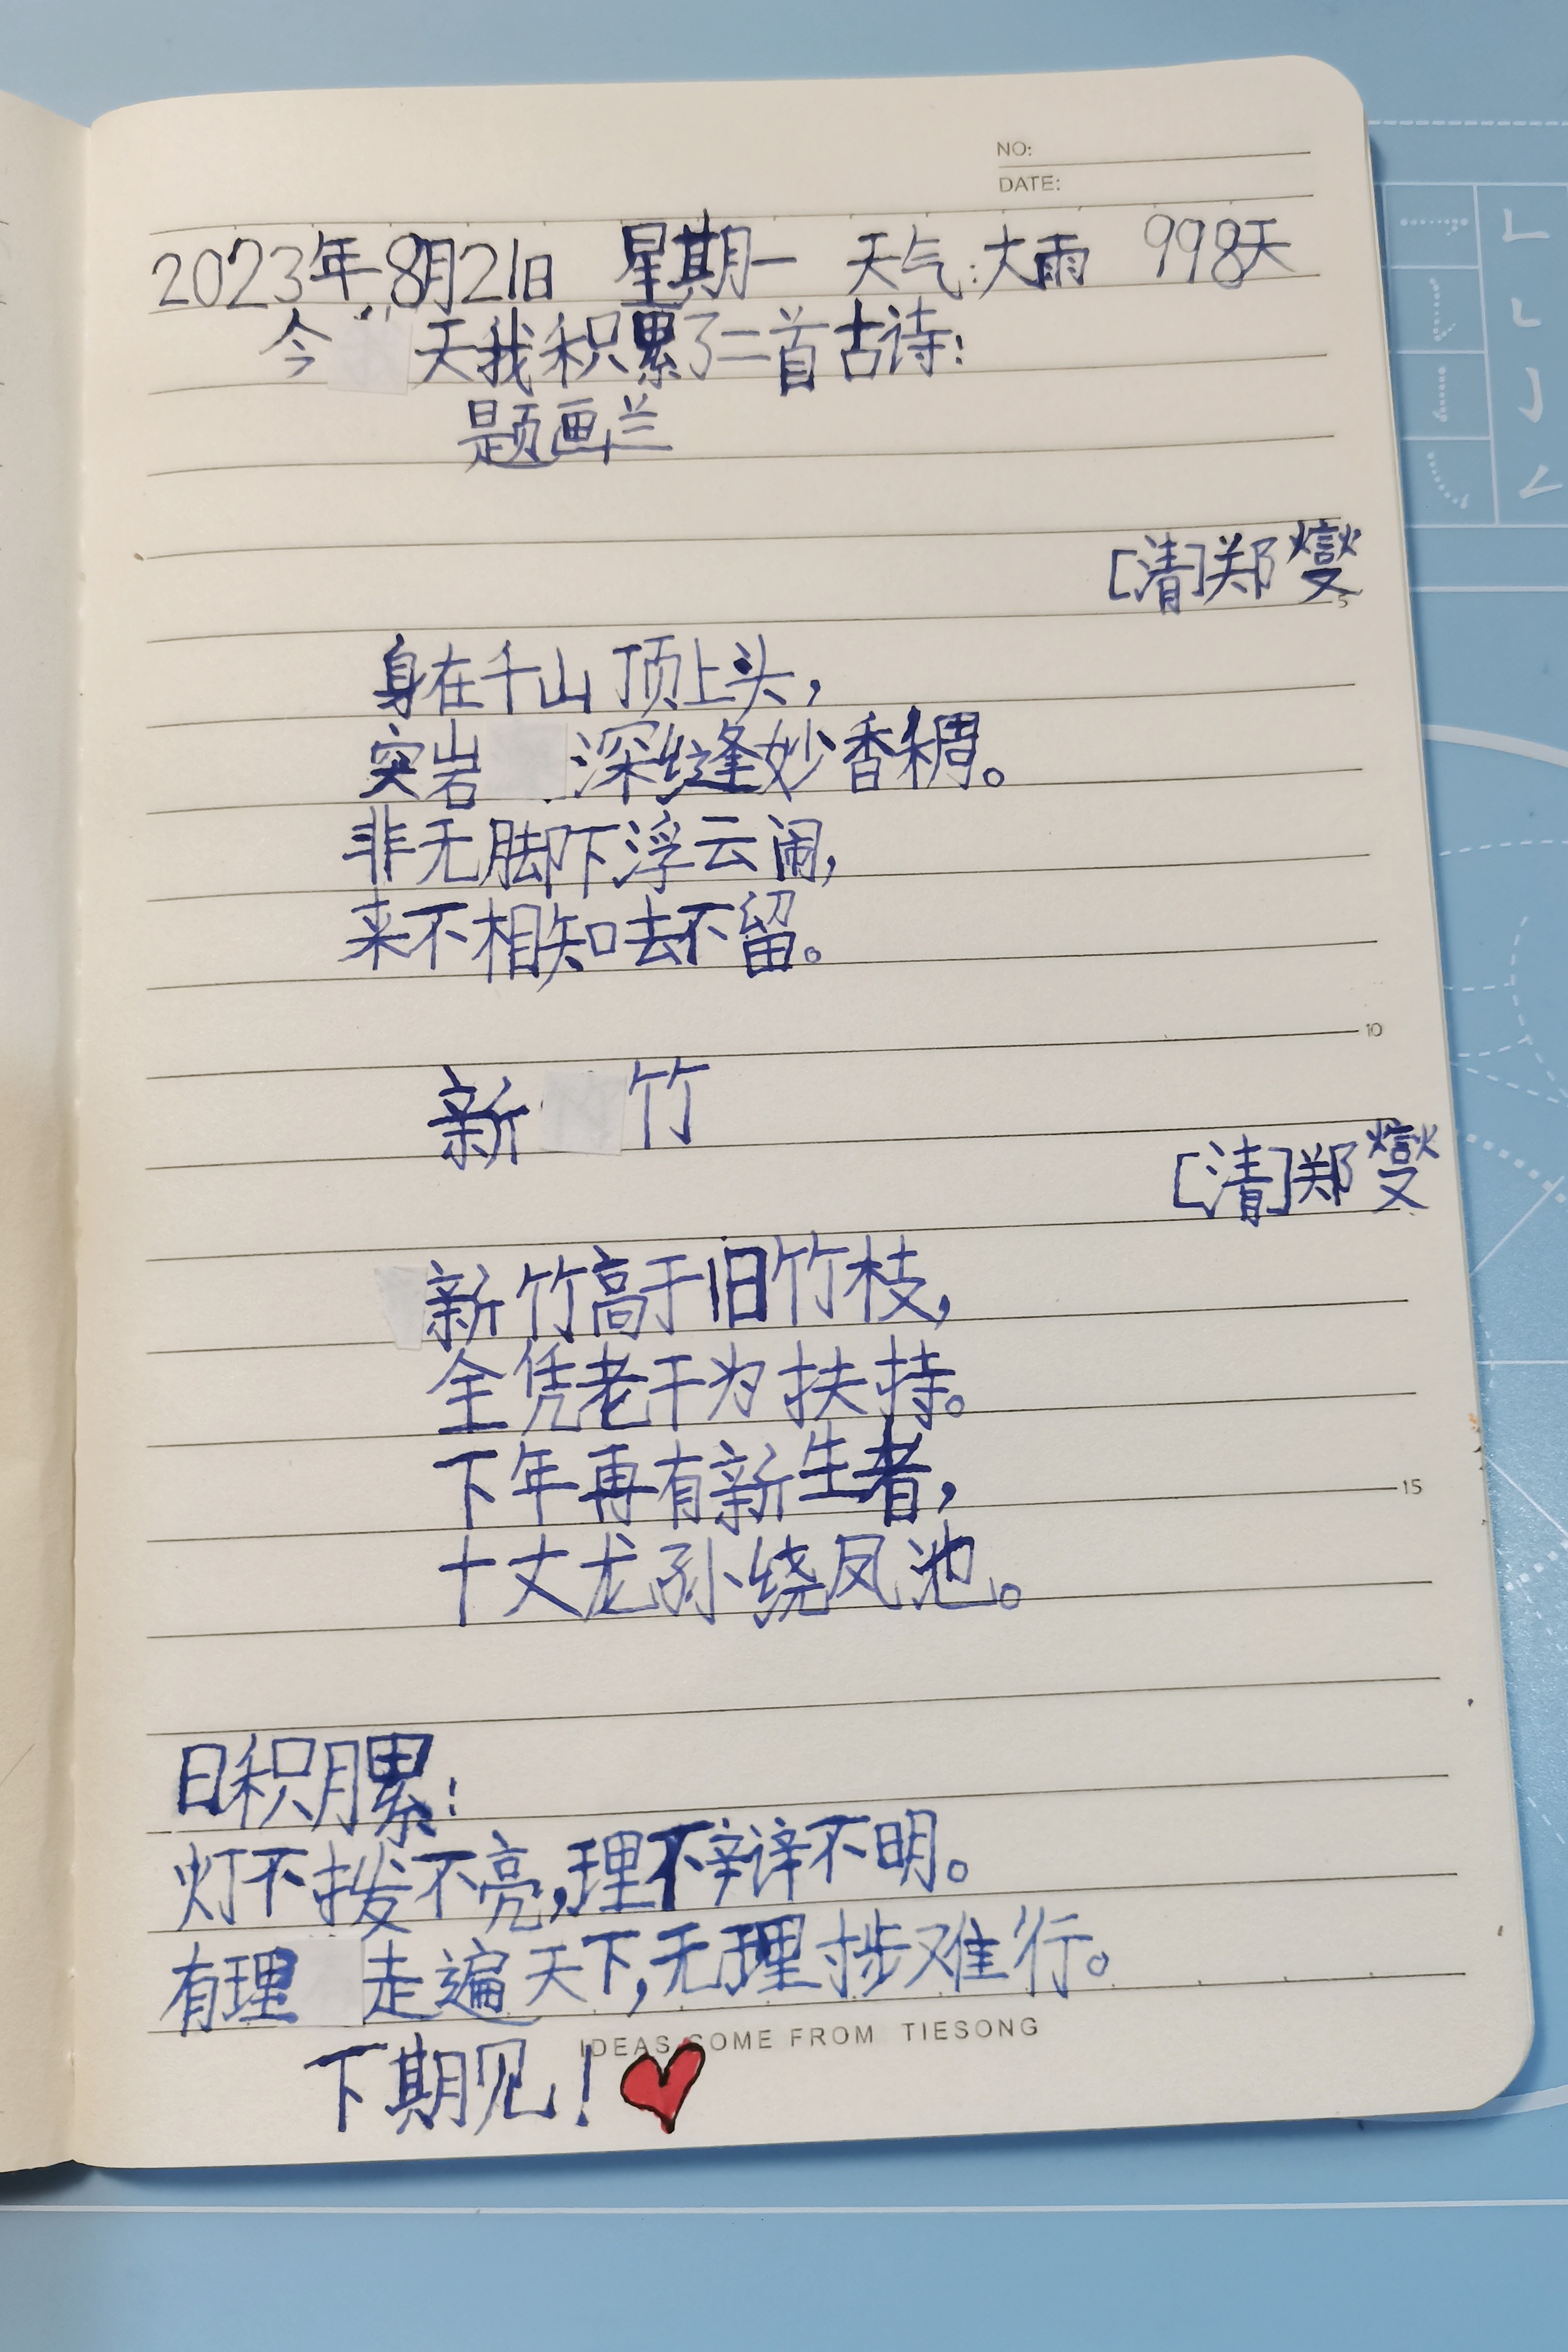 NO:
DATE:
2023年8月21日 星期一 天气:大雨 998天
今天我积累了二首古诗:
题画兰
[清]郑燮
5
身在千山顶上头,
突岩深缝妙香稠。
非无脚下浮云闹,
来不相知去不留。
10
新竹
[清]郑燮
新竹高于旧竹枝,
全凭老干为扶持。
下年再有新生者,
15
十丈龙孙绕凤池。
日积月累:
灯不拨不亮,理不辩不明。
有理走遍天下,无理寸步难行。
IDEAS COME FROM TIESONG
下期见!